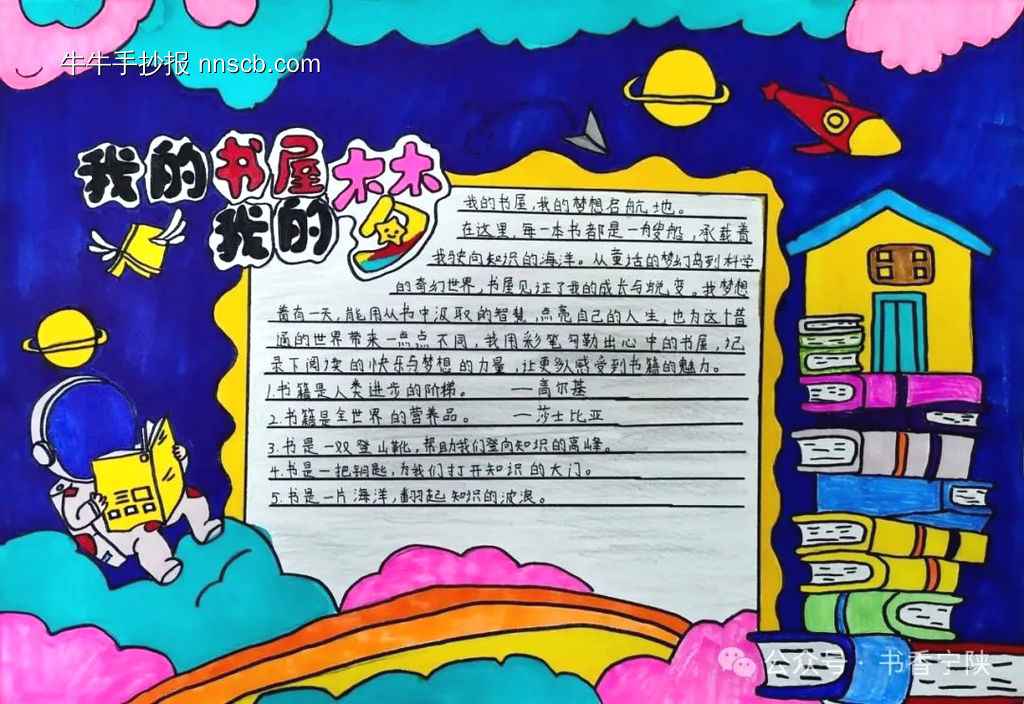 牛牛手抄报 nnscb.com
我的书屋
我的梦
我的书屋,我的梦想启航地。
在这里,每一本书都是一艘船,承载着
我驶向知识的海洋。从童话的梦幻岛到科学
的奇幻世界,书屋见证了我的成长与蜕变。我梦想
着有一天,能用从书中汲取的智慧,点亮自己的人生,也为这个普
通的世界带来一点点不同,我用彩笔勾勒出心中的书屋,记
录下阅读的快乐与梦想的力量,让更多人感受到书籍的魅力。
1.书籍是人类进步的阶梯。 —高尔基
2.书籍是全世界的营养品。 —莎士比亚
3.书是一双登山靴,帮助我们登向知识的高峰。
4.书是一把钥匙,为我们打开知识的大门。
5.书是一片海洋,翻起知识的波浪。
公众号·书香宁陕